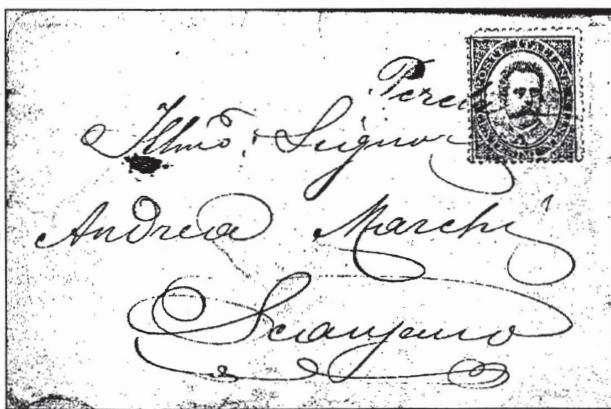 Illmo. Signor
Andrea Marchi
Scanzano